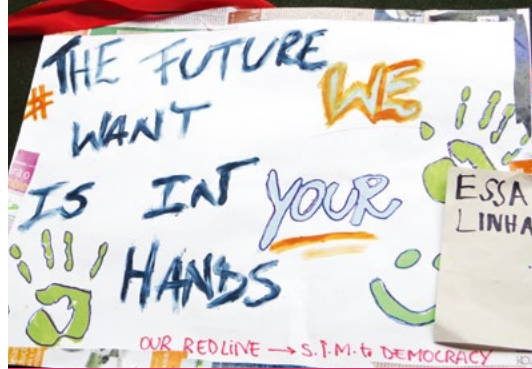 THE FUTURE WE
# WANT
IS IN YOUR
HANDS
ESSA
LINHA
OUR REDLINE → S.I.M. to DEMOCRACY